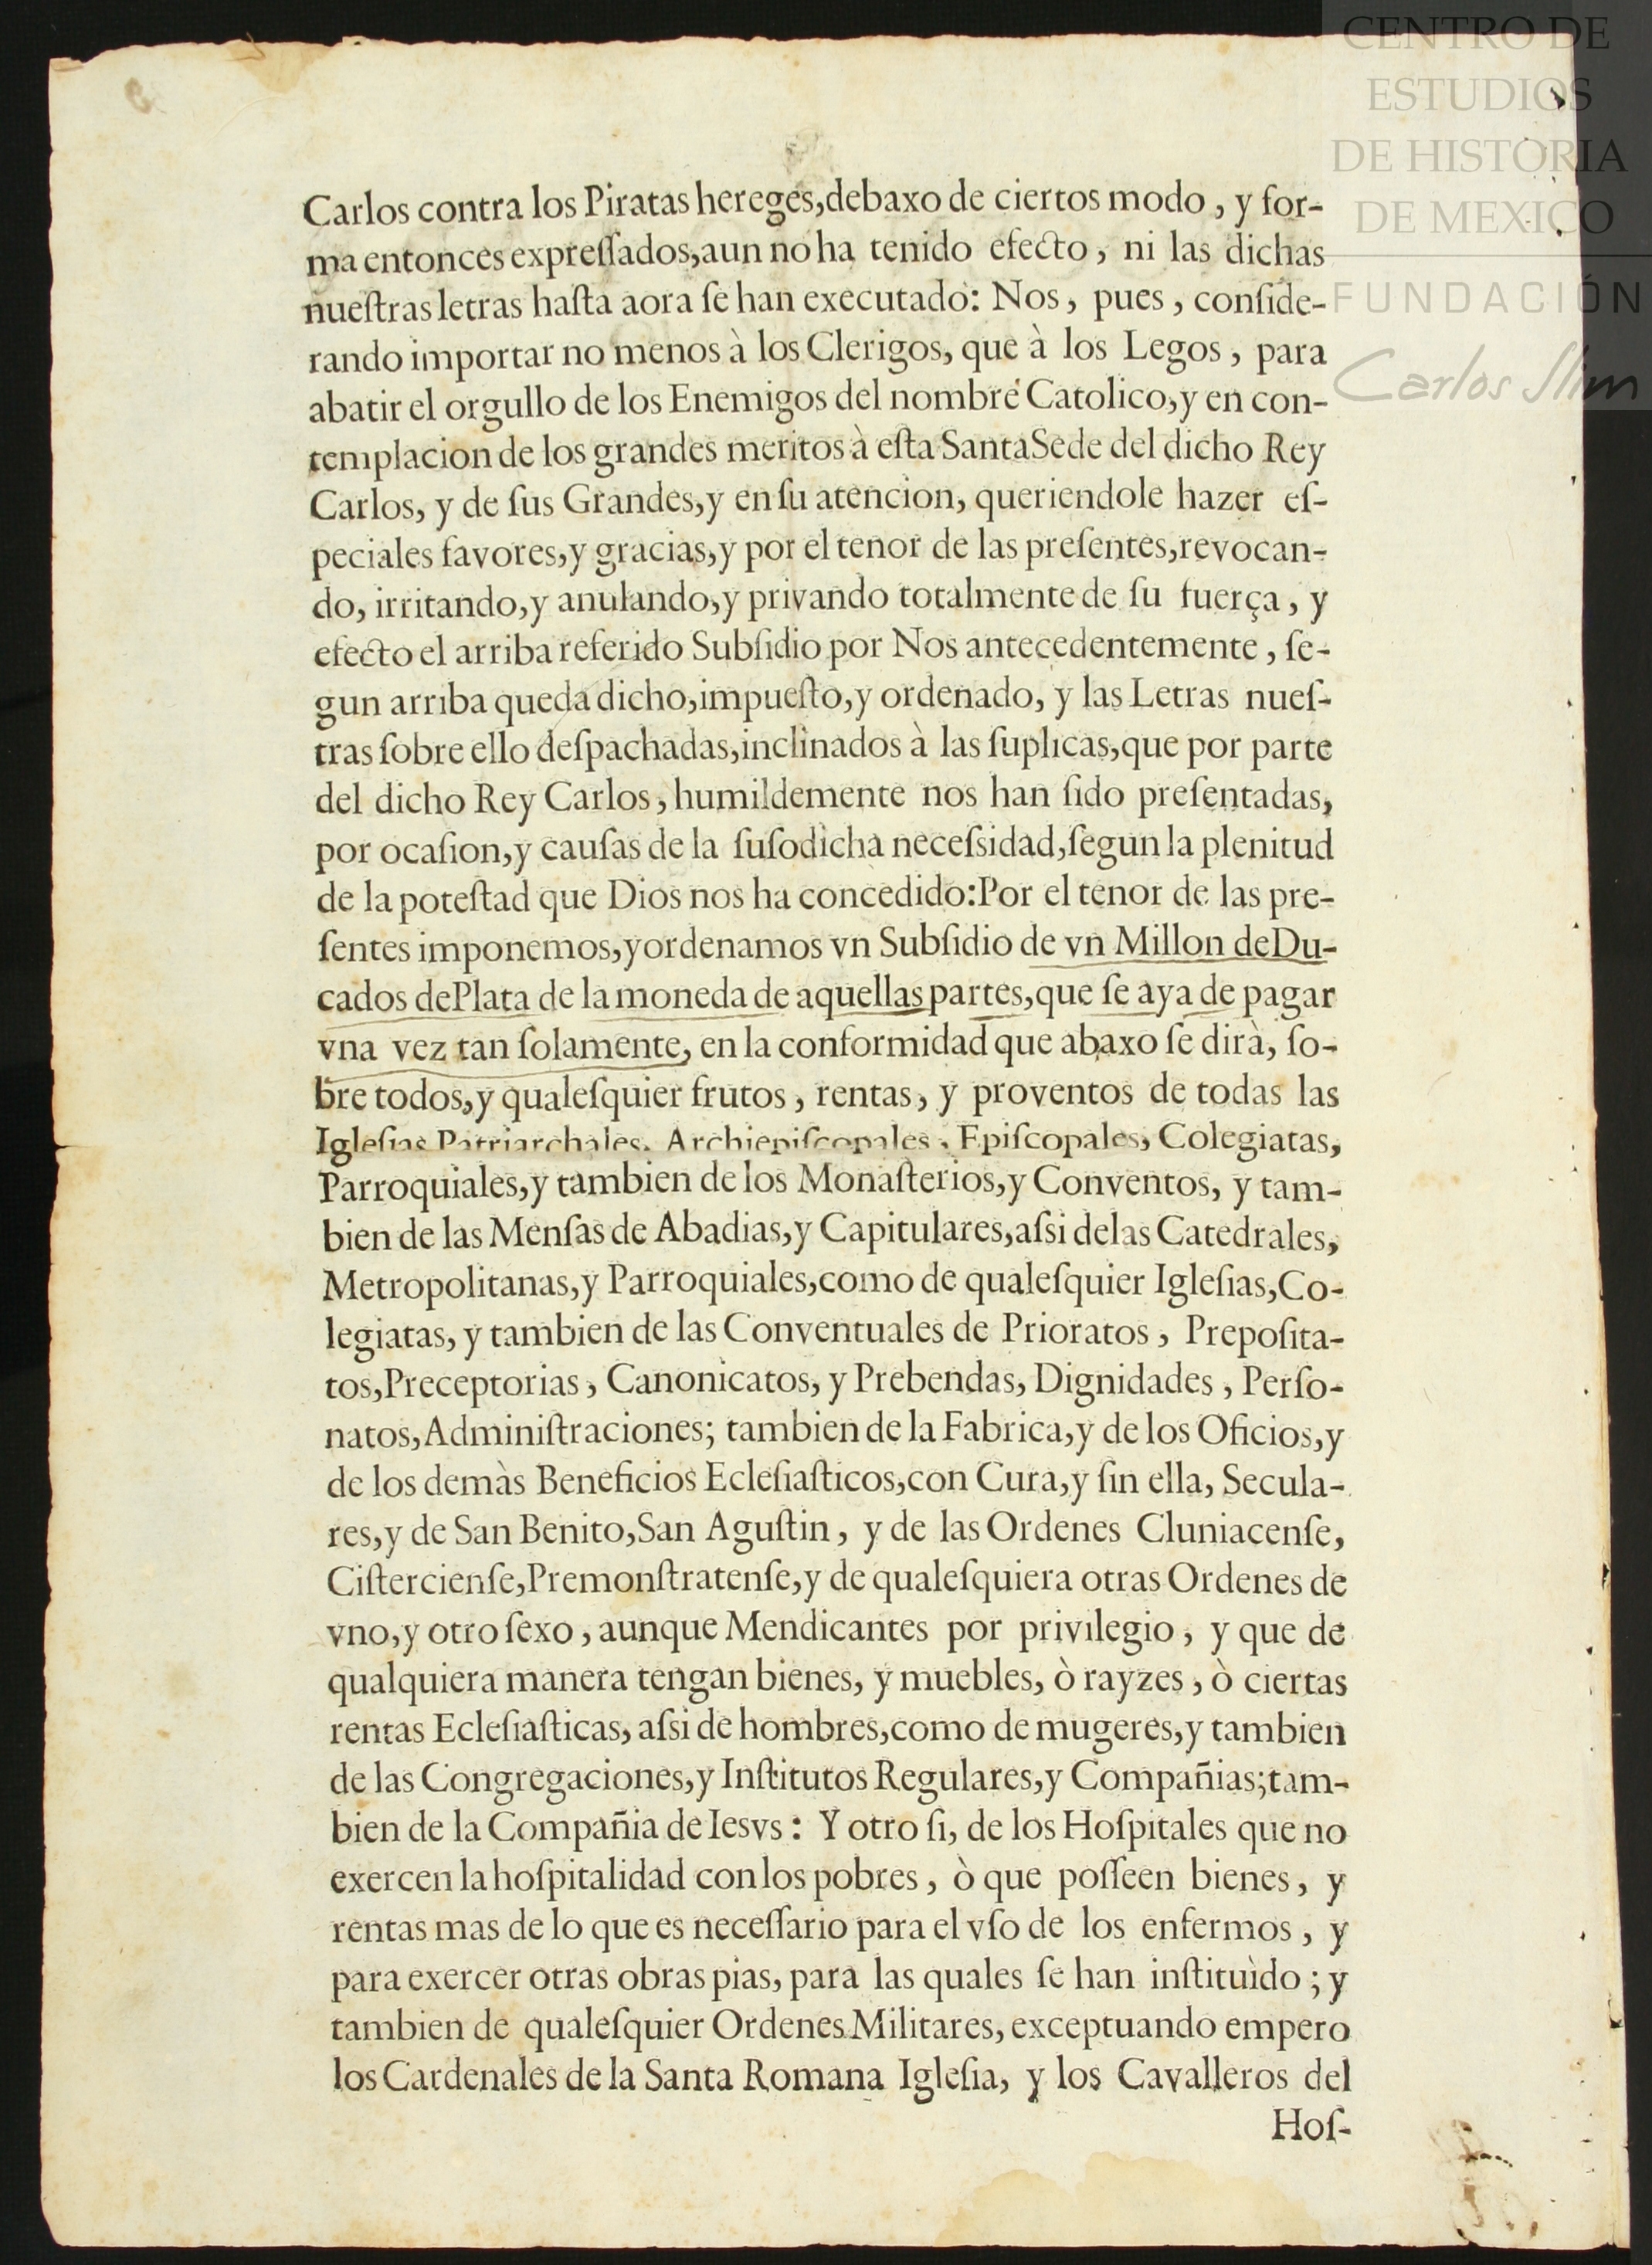 CENTRO DE
ESTUDIOS
DE HISTORIA
DE MEXICO
FUNDACIÓN
Carlos Slim
Carlos contra los Piratas hereges,debaxo de ciertos modo , y for-
ma entonces expreſſados,aun no ha tenido efecto , ni las dichas
nueſtras letras haſta aora ſe han executado: Nos , pues , conſide-
rando importar no menos à los Clerigos, que à los Legos , para
abatir el orgullo de los Enemigos del nombre Catolico,y en con-
templacion de los grandes meritos à eſta Santa Sede del dicho Rey
Carlos, y de ſus Grandes,y en ſu atencion, queriendole hazer eſ-
peciales favores,y gracias,y por el tenor de las preſentes,revocan-
do, irritando,y anulando,y privando totalmente de ſu fuerça , y
efecto el arriba referido Subſidio por Nos antecedentemente , ſe-
gun arriba queda dicho,impueſto,y ordenado, y las Letras nueſ-
tras ſobre ello deſpachadas,inclinados à las ſuplicas,que por parte
del dicho Rey Carlos , humildemente nos han ſido preſentadas,
por ocaſion,y cauſas de la ſuſodicha neceſsidad,ſegun la plenitud
de la poteſtad que Dios nos ha concedido:Por el tenor de las pre-
ſentes imponemos,y ordenamos vn Subſidio de vn Millon de Du-
cados de Plata de la moneda de aquellas partes,que ſe aya de pagar
vna vez tan ſolamente, en la conformidad que abaxo ſe dirà, ſo-
bre todos,y qualeſquier frutos , rentas , y proventos de todas las
Igleſias Patriarchales, Archiepiſcopales , Epiſcopales, Colegiatas,
Parroquiales,y tambien de los Monaſterios,y Conventos, y tam-
bien de las Menſas de Abadias,y Capitulares,aſsi de las Catedrales,
Metropolitanas,y Parroquiales,como de qualeſquier Igleſias,Co-
legiatas, y tambien de las Conventuales de Prioratos , Prepoſita-
tos,Preceptorias , Canonicatos, y Prebendas, Dignidades , Perſo-
natos,Adminiſtraciones; tambien de la Fabrica,y de los Oficios,y
de los demàs Beneficios Ecleſiaſticos,con Cura,y ſin ella, Secula-
res,y de San Benito,San Aguſtin , y de las Ordenes Cluniacenſe,
Ciſtercienſe,Premonſtratenſe,y de qualeſquiera otras Ordenes de
vno,y otro ſexo , aunque Mendicantes por privilegio , y que de
qualquiera manera tengan bienes, y muebles, ò rayzes , ò ciertas
rentas Ecleſiaſticas, aſsi de hombres,como de mugeres,y tambien
de las Congregaciones,y Inſtitutos Regulares,y Compañias;tam-
bien de la Compañia de Iesvs : Y otro ſi, de los Hoſpitales que no
exercen la hoſpitalidad con los pobres , ò que poſſeen bienes , y
rentas mas de lo que es neceſſario para el vſo de los enfermos , y
para exercer otras obras pias, para las quales ſe han inſtituìdo ; y
tambien de qualeſquier Ordenes Militares, exceptuando empero
los Cardenales de la Santa Romana Igleſia, y los Cavalleros del
Hoſ-